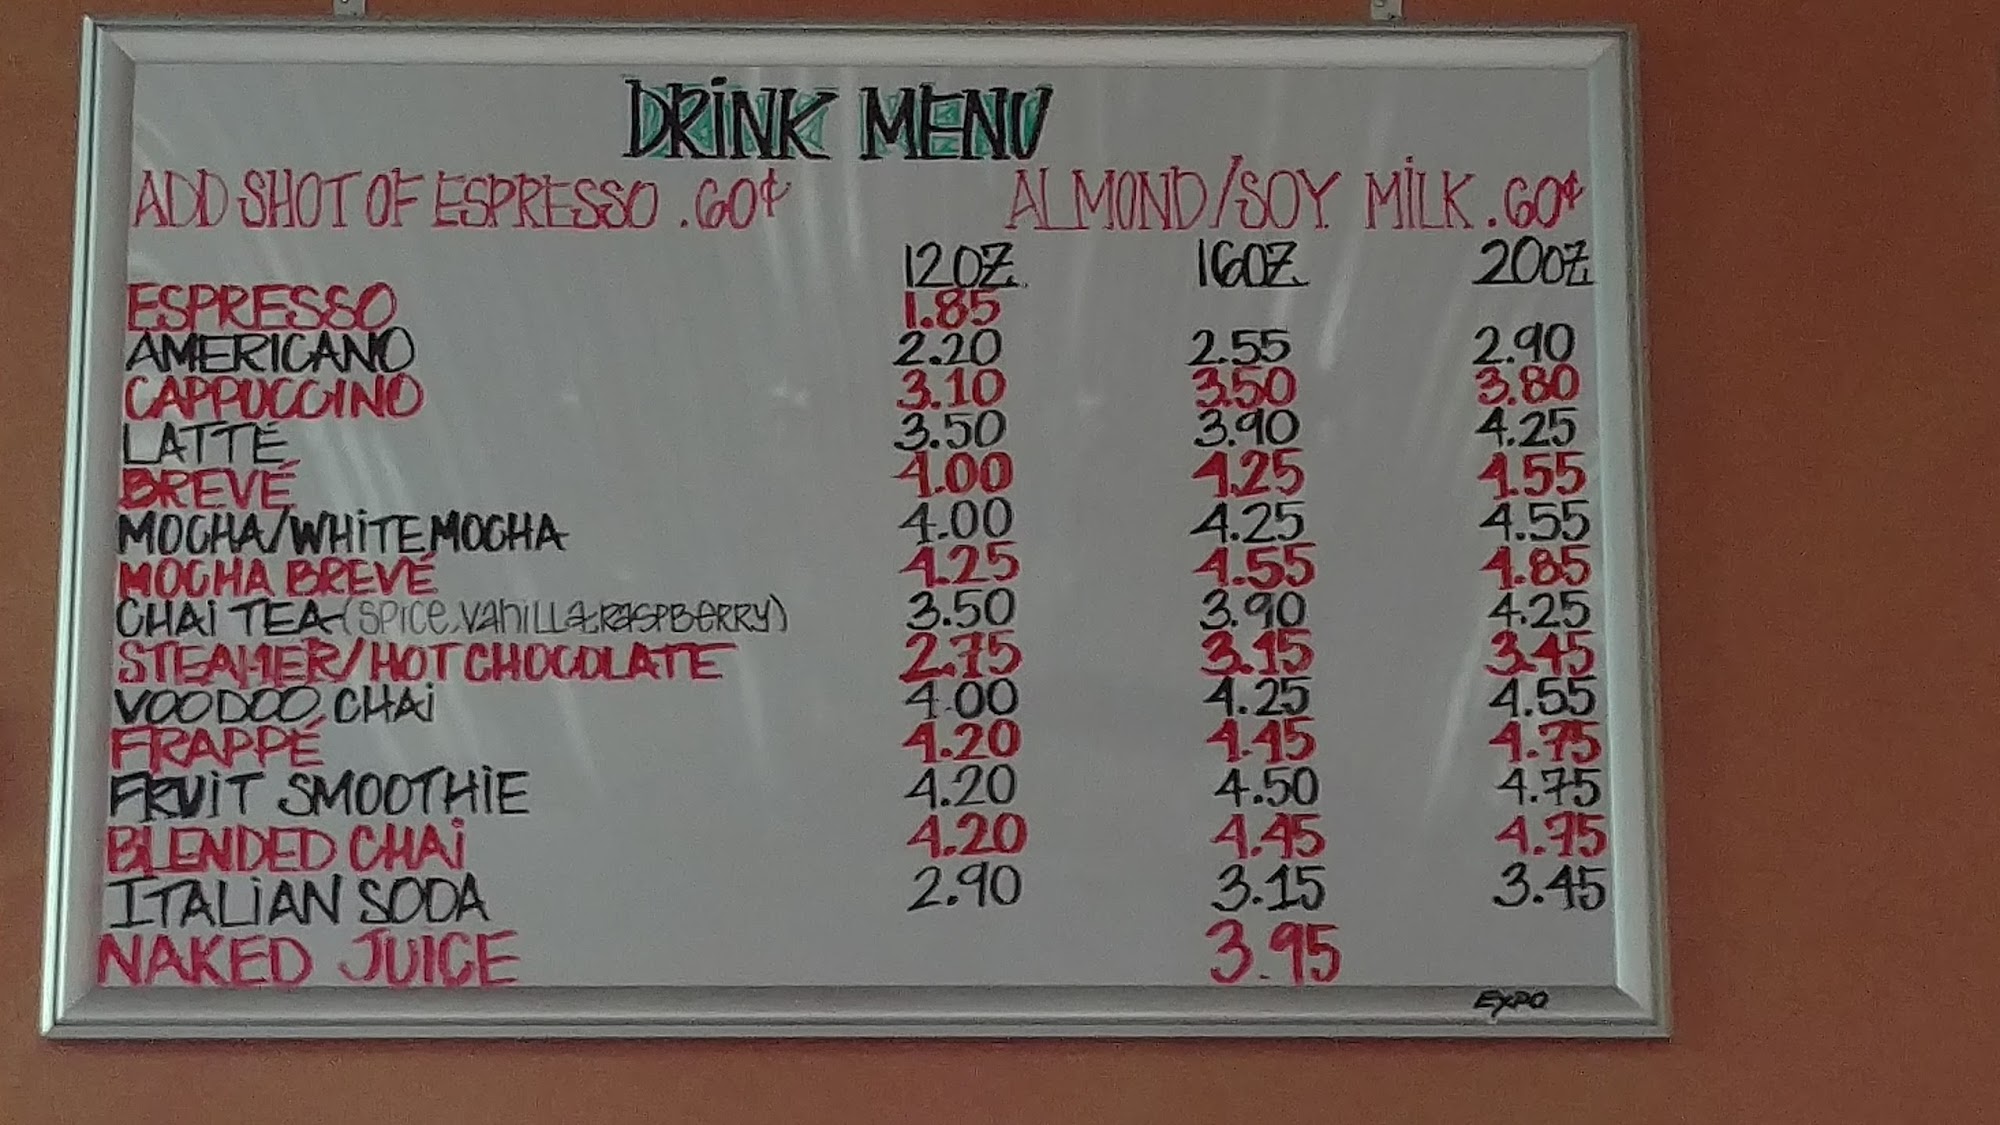 DRINK MENU
ADD SHOT OF ESPRESSO .60¢ ALMOND/SOY MILK .60¢
12OZ. 16OZ. 20OZ.
ESPRESSO 1.85
AMERICANO 2.20 2.55 2.90
CAPPUCCINO 3.10 3.50 3.80
LATTÉ 3.50 3.90 4.25
BREVÉ 4.00 4.25 4.55
MOCHA/WHITE MOCHA 4.00 4.25 4.55
MOCHA BREVÉ 4.25 4.55 4.85
CHAI TEA-(SPICE, VANILLA & RASPBERRY) 3.50 3.90 4.25
STEAMER/HOT CHOCOLATE 2.75 3.15 3.45
VOODOO CHAI 4.00 4.25 4.55
FRAPPÉ 4.20 4.45 4.75
FRUIT SMOOTHIE 4.20 4.50 4.75
BLENDED CHAI 4.20 4.45 4.75
ITALIAN SODA 2.90 3.15 3.45
NAKED JUICE 3.95
EXPO